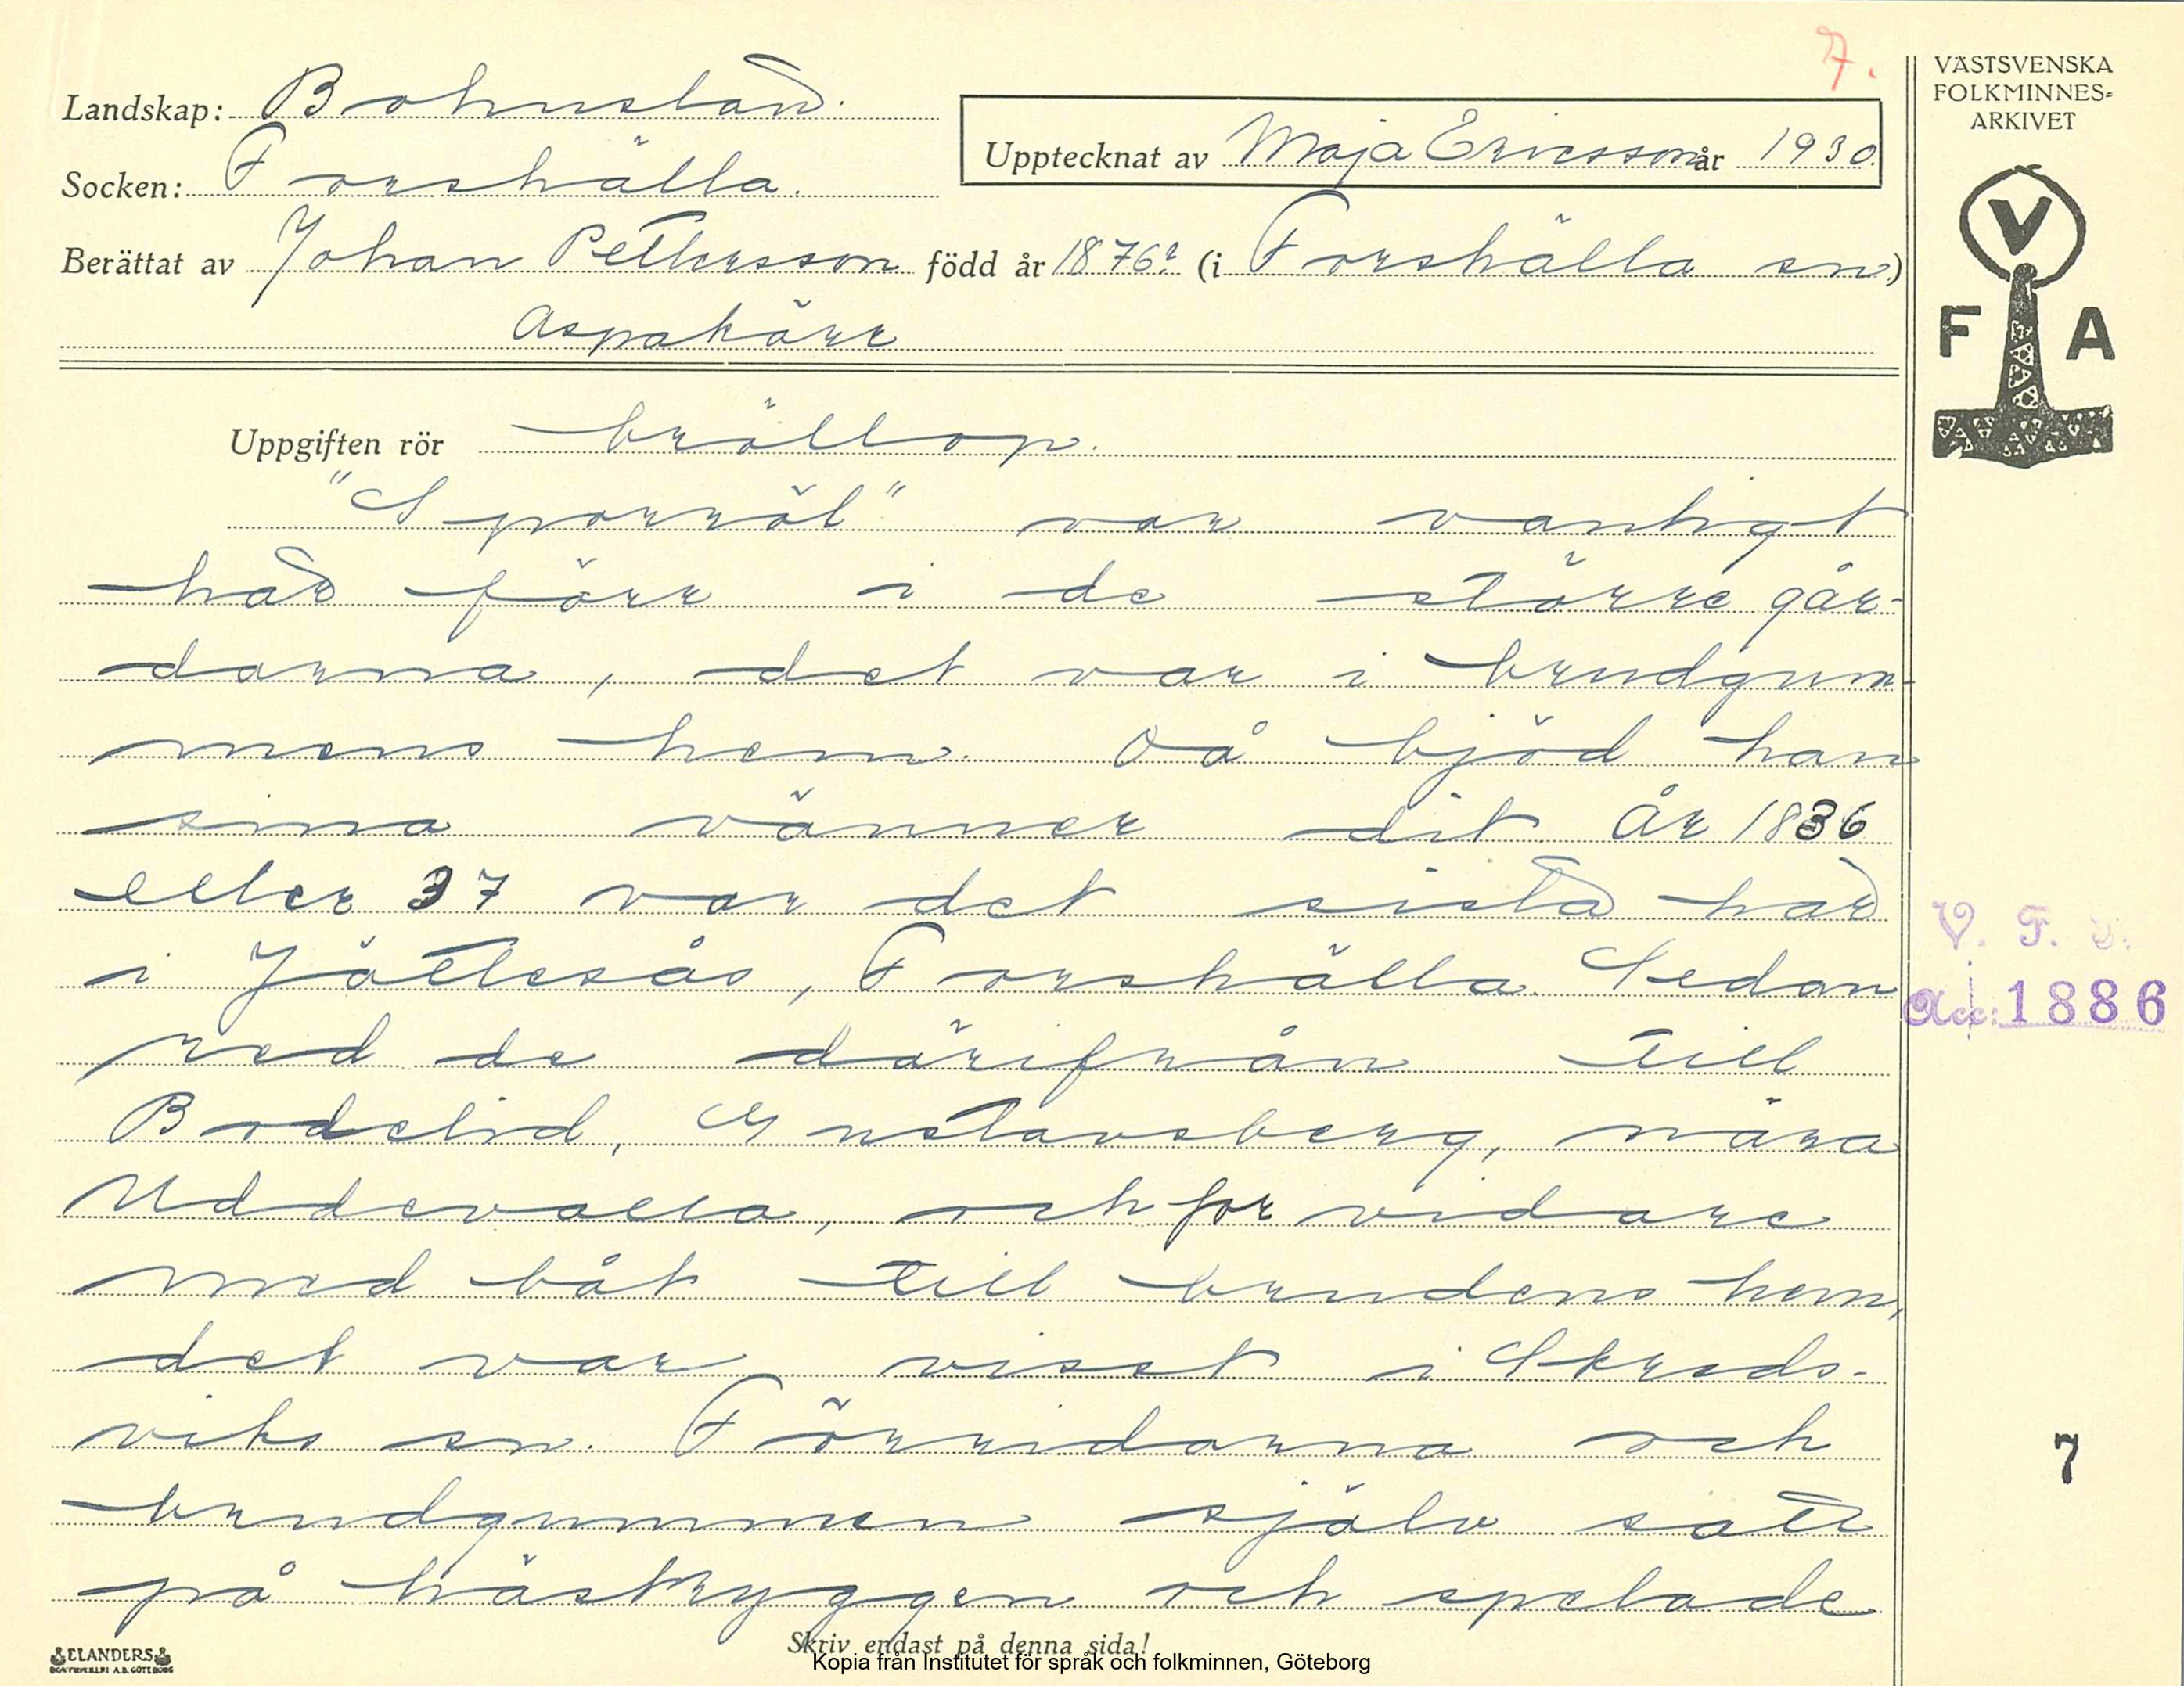 7.
VÄSTSVENSKA
FOLKMINNES=
ARKIVET
Landskap: Bohuslän.
Upptecknat av Maja Ericsson år 1930
Socken: Forshälla.
Berättat av Johan Pettersson född år 1876? (i Forshälla sn.)
Aspakärr
V
F A
Uppgiften rör bröllop.
"Sporröl" var vanligt
här förr i de större går-
darna, det var i brudgum-
mens hem. Då bjöd han
sina vänner dit. År 1836
eller 37 var det sista här
i Jättesås, Forshälla. Sedan
red de därifrån till
Bodelid, Gustavsberg, nära
Uddevalla, och for vidare
med båt till brudens hem,
det var visst i Skreds-
viks sn. Förridarna och
brudgummen själv satt
på hästryggen och spelade
V. F. F.
Acc: 1886
7
Skriv endast på denna sida!
ELANDERS
BOKTRYCKERI A.B. GÖTEBORG
Kopia från Institutet för språk och folkminnen, Göteborg